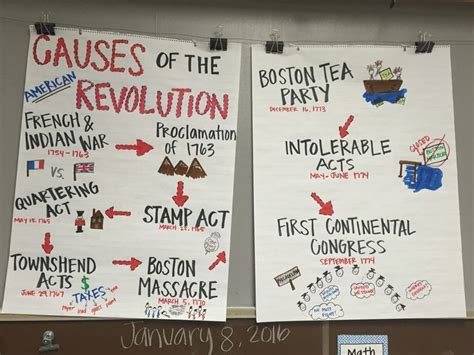 CAUSES OF THE
AMERICAN
REVOLUTION
FRENCH &
INDIAN WAR
1754-1763
VS.
Proclamation
of 1763
QUARTERING
ACT
MAY 15, 1765
STAMP ACT
MARCH 22, 1765
TOWNSHEND
ACTS
JUNE 29, 1767
TAXES
$
paper lead glass paint
BOSTON
MASSACRE
MARCH 5, 1770
BOSTON TEA
PARTY
DECEMBER 16, 1773
INTOLERABLE
ACTS
MAY-JUNE 1774
CLOSED
BOSTON
HARBOR
FIRST CONTINENTAL
CONGRESS
SEPTEMBER 1774
PHILADELPHIA
January 8, 2016
Math